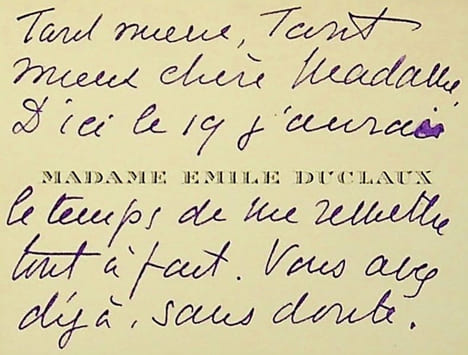 Tant mieux, Tant
mieux chère Madame,
D'ici le 19 j'aurai
MADAME EMILE DUCLAUX
le temps de me remettre
tout à fait. Vous avez
déjà, sans doute,